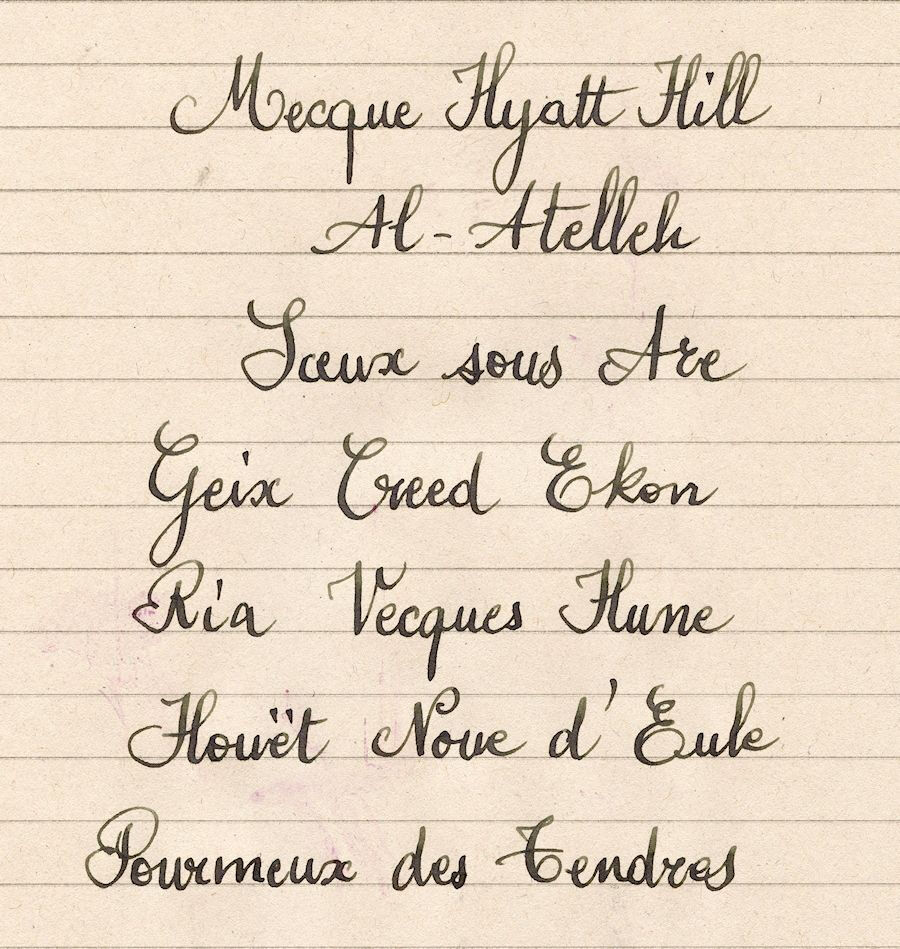 Mecque Hyatt Hill
Al-Atelleh
Sœux sous Are
Geix Creed Ekon
Ria Vecques Hune
Houët Noue d'Eule
Pourmeux des Tendres